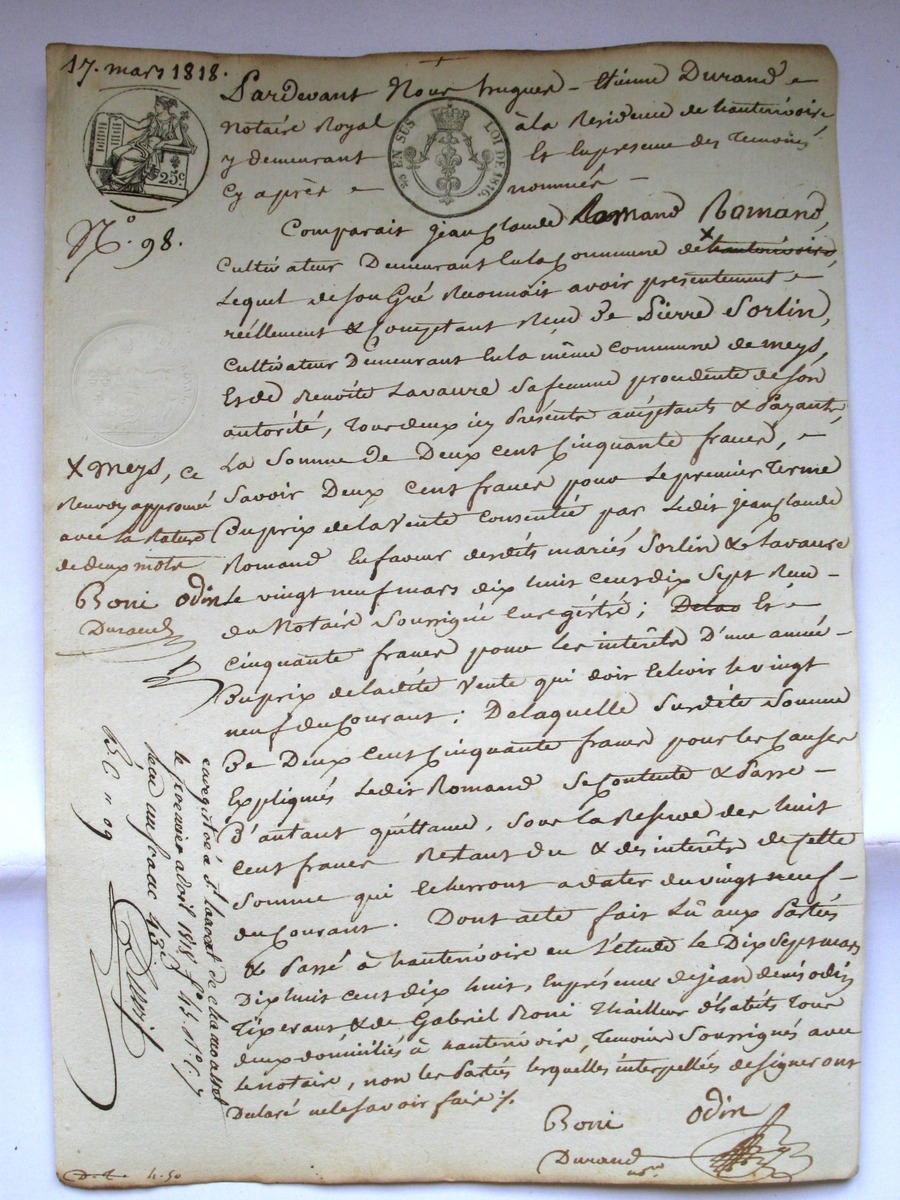 17. mars 1818.
Pardevant Nous hugues - Etienne Durand
Notaire Royal à la Residence de hauterivoire
y demeurant Et En presence des Temoins
Cy après nommés -
25 c
EN SUS LOI DE 1816.
N.º 98.
Comparait jean Claude Romand,
Cultivateur Demeurant En la Commune de X hauterivoire,
Lequel de son Gré Reconnait avoir présentement
réellement & Comptant Reçu De Pierre Sorlin,
Cultivateur Demeurant En la même Commune de meys,
Et de Benoite Lavaure Sa femme procedente de son
autorité, Tous deux icy Présents acceptants & Payants,
La Somme de Deux cent Cinquante francs,
Savoir Deux Cent francs pour Le premier Terme
Du prix de la Vente Consentie par Ledit jean Claude
Romand En faveur desdits mariés Sorlin & Lavaure
Le vingt neuf mars dix huit cent dix Sept Reçu
du Notaire Soussigné Enregistré; Et
Cinquante francs pour les intérêts D'une année
Du prix de ladite Vente qui doit Echoir le vingt
neuf du Courant; De laquelle Susdite Somme
De Deux Cent Cinquante francs pour les Causes
Expliqués Ledit Romand Se Contente & Passe
D'autant quittance, Sous la Reserve des huit
Cent francs Restant du & des intérêts de Cette
Somme qui Echerront a dater du vingt neuf
du Courant. Dont acte fait Lû aux Parties
& Passé à hauterivoire en l'étude Le Dix Sept mars
Dix huit cent dix huit, En présence de jean denis odin
Tixerant & de Gabriel Boni Thailleur d'habits Tous
deux domiciliés à hauterivoire, Temoins Soussignés avec
le notaire, non les Parties lesquelles interpellées de signer ont
Declaré ne le Savoir faire ./.
Boni odin
Durand
X meys, ce
Renvoy approuvé
avec la Rature
de deux mots
Boni odin
Durand
enregistré à St Laurent de chamousset
le premier avril 1818 fº 45
reçu un franc
4.50